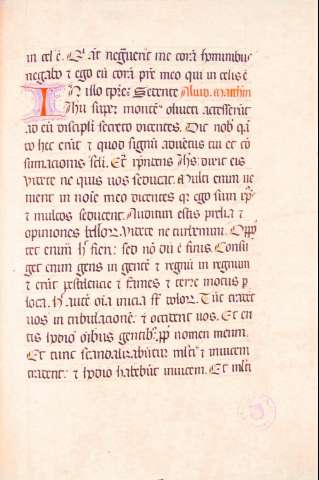 in cel e. Q at neguerit me cora hominibus
negabo & ego eu cora pre meo qui in celis e
In illo tpre: Sedente Aliud. Matthm
Ihu super monte oliueti accesserut
ad eu discipli secreto dicentes. Dic nob qn
hec erut & quod signu aduetus tui et co
sumacionis seli. Et rpndens Ihs dixit eis
Videte ne quis uos seducat. Multi enim ue
nient in noie meo dicentes qr ego sum xps
& multos seducent. Audituri estis prelia &
opiniones bellor. Videte ne turbemini. Opor
tet enim h fieri: sed no du e finis. Consur
get enim gens in gente & regnu in regnum
& erut pestilencie & fames & terre motus p
loca. h aute oia inicia st dolor. Tuc tradet
uos in tribulacione & occident uos. Et eri
tis hodio oibus gentib. pp nomen meum.
Et tunc scandalizabutur mlti & inuicem
tradent. & hodio habebut inuicem. Et mlti